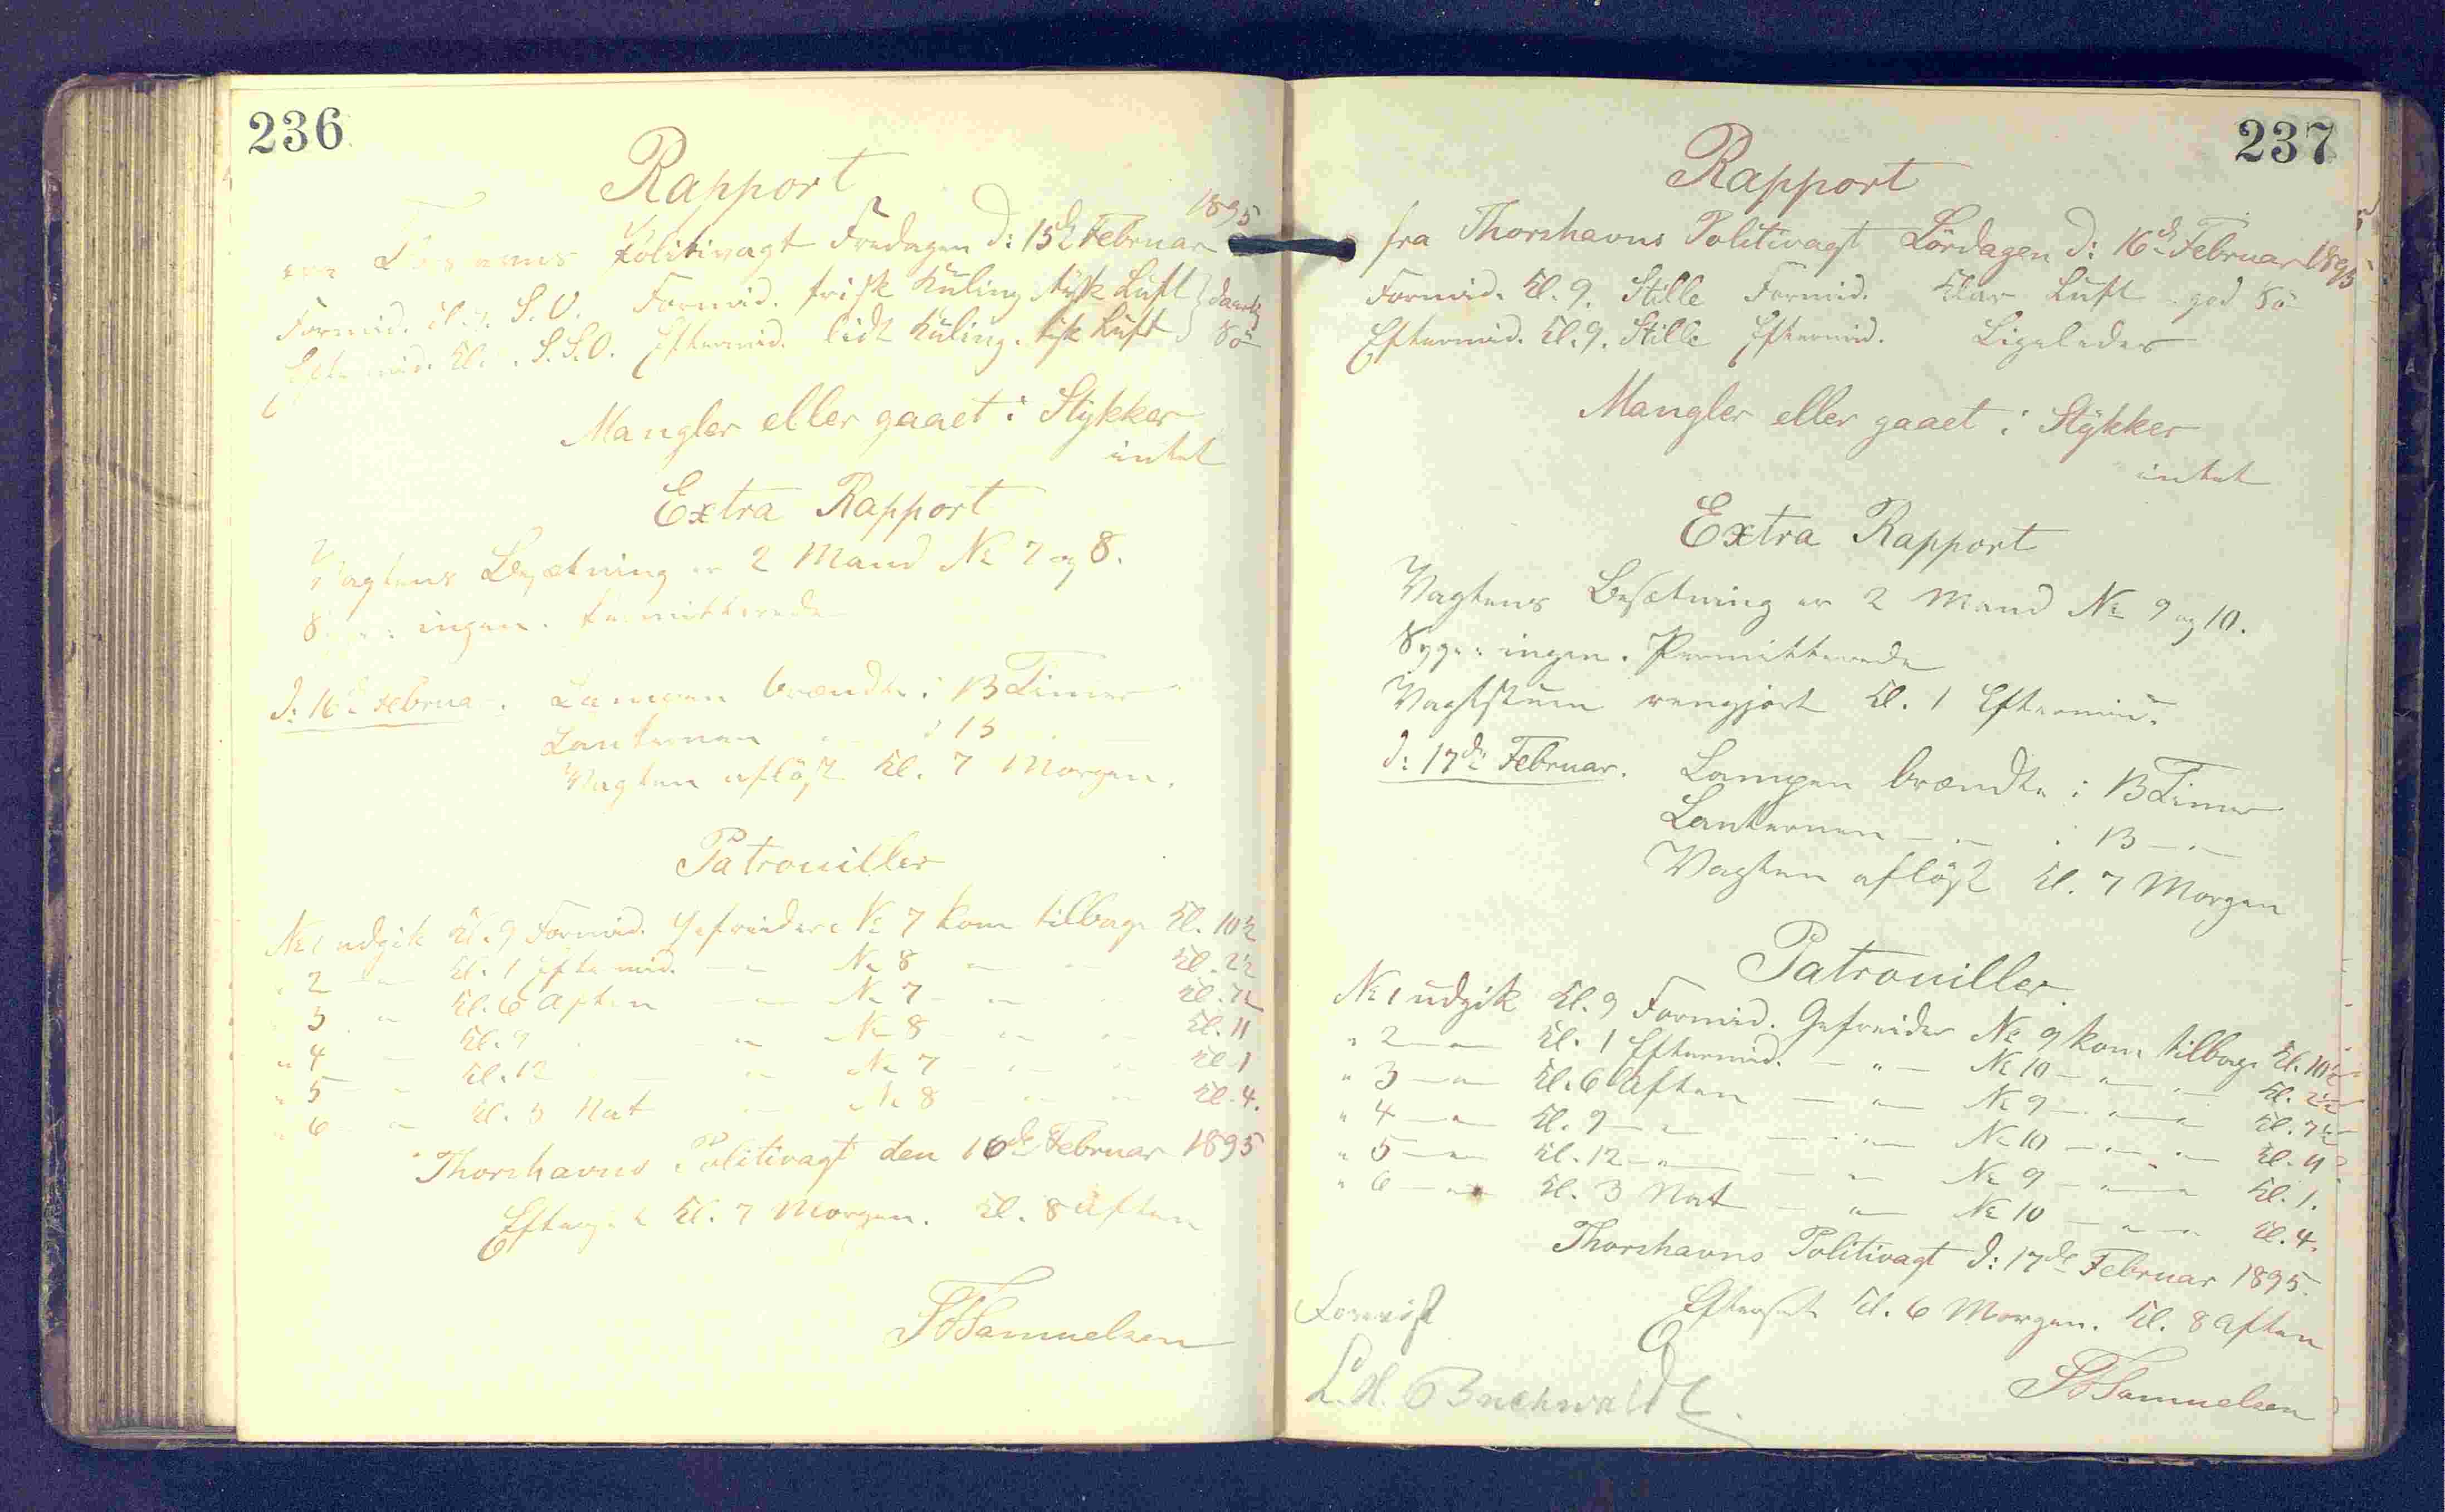 236
Rapport
1895
Politivagt Fredagen d: 15de Februar
Formid. Kl. 9. S.O. Formid. frisk Kuling tyk Luft
Eftermid. Kl. 9. S.S.O. Eftermid. lidt Kuling. tyk Luft
Sö
Mangler eller gaaet i Stykker
intet
Extra Rapport
Vagtens Besætning er 2 Mand No 7 og 8.
Syge: ingen. Permitterede
d: 16de Februar. Lampen brændte i 13 Timer
Lanternen
Vagten aflöst Kl. 7 Morgen.
Patrouiller
No 1 udgik Kl. 9 Formid. Gefreider No 7 kom tilbage Kl. 10½
" 2 — " — Kl. 1 Eftermid. — " — No 8 — " — " — Kl. 2½
" 3 — " — Kl. 6 Aften — " — No 7 — " — " — Kl. 7½
" 4 — " — Kl. 9 — " — No 8 — " — " — Kl. 11
" 5 — " — Kl. 12 — " — No 7 — " — " — Kl. 1
" 6 — " — Kl. 3 Nat — " — No 8 — " — " — Kl. 4.
Thorshavns Politivagt den 16de Februar 1895
Efterset Kl. 7 Morgen. Kl. 8 Aften
Samuelsen
237
Rapport
fra Thorshavns Politivagt Lördagen d: 16de Februar 1895
Formid. Kl. 9. Stille Formid. Klar Luft god Sö
Eftermid. Kl. 9. Stille Eftermid. Ligeledes
Mangler eller gaaet i Stykker
intet
Extra Rapport
Vagtens Besætning er 2 Mand No 9 og 10.
Syge: ingen. Permitterede
Vagtstuen rengjort Kl. 1 Eftermid.
d: 17de Februar. Lampen brændte i 13 Timer
Lanternen — " — i 13 — " —
Vagten aflöst Kl. 7 Morgen
Patrouiller
No 1 udgik Kl. 9 Formid. Gefreider No 9 kom tilbage Kl. 10½
" 2 — " — Kl. 1 Eftermid. — " — No 10 — " — " — Kl. 2½
" 3 — " — Kl. 6 Aften — " — No 9 — " — " — Kl. 7½
" 4 — " — Kl. 9 — " — — " — No 10 — " — " — Kl. 11
" 5 — " — Kl. 12 — " — — " — No 9 — " — " — Kl. 1.
" 6 — " — Kl. 3 Nat — " — No 10 — " — " — Kl. 4.
Thorshavns Politivagt d: 17de Februar 1895.
Efterset Kl. 6 Morgen. Kl. 8 Aften
Samuelsen
L. H. Buchwaldt.